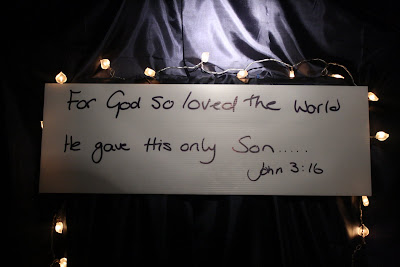 For God so loved the World
He gave His only Son.....
John 3:16